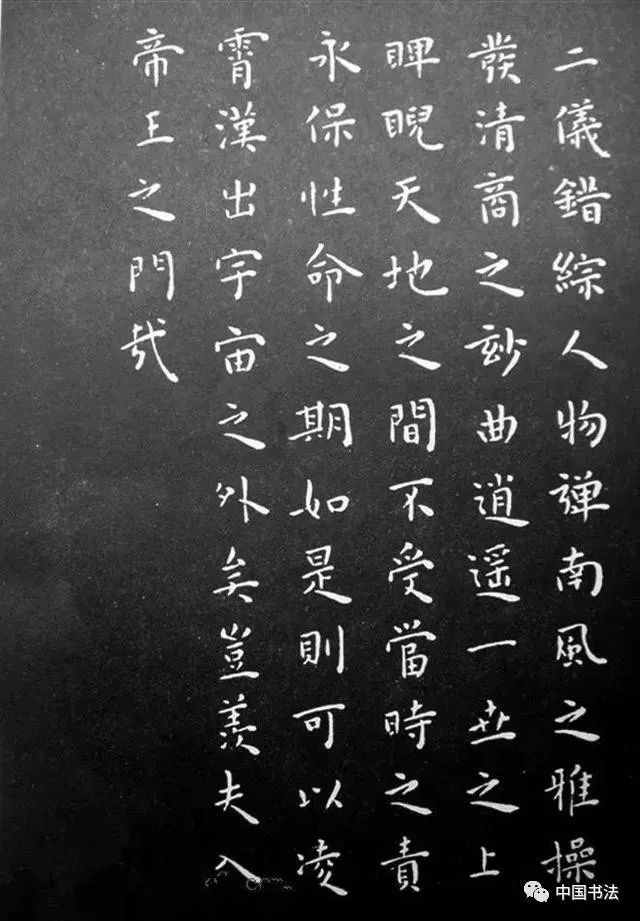 二儀錯綜人物彈南風之雅操
發清商之玅曲逍遥一世之上
睥睨天地之間不受當時之責
永保性命之期如是則可以凌
霄漢出宇宙之外矣豈羨夫入
帝王之門哉
中国书法